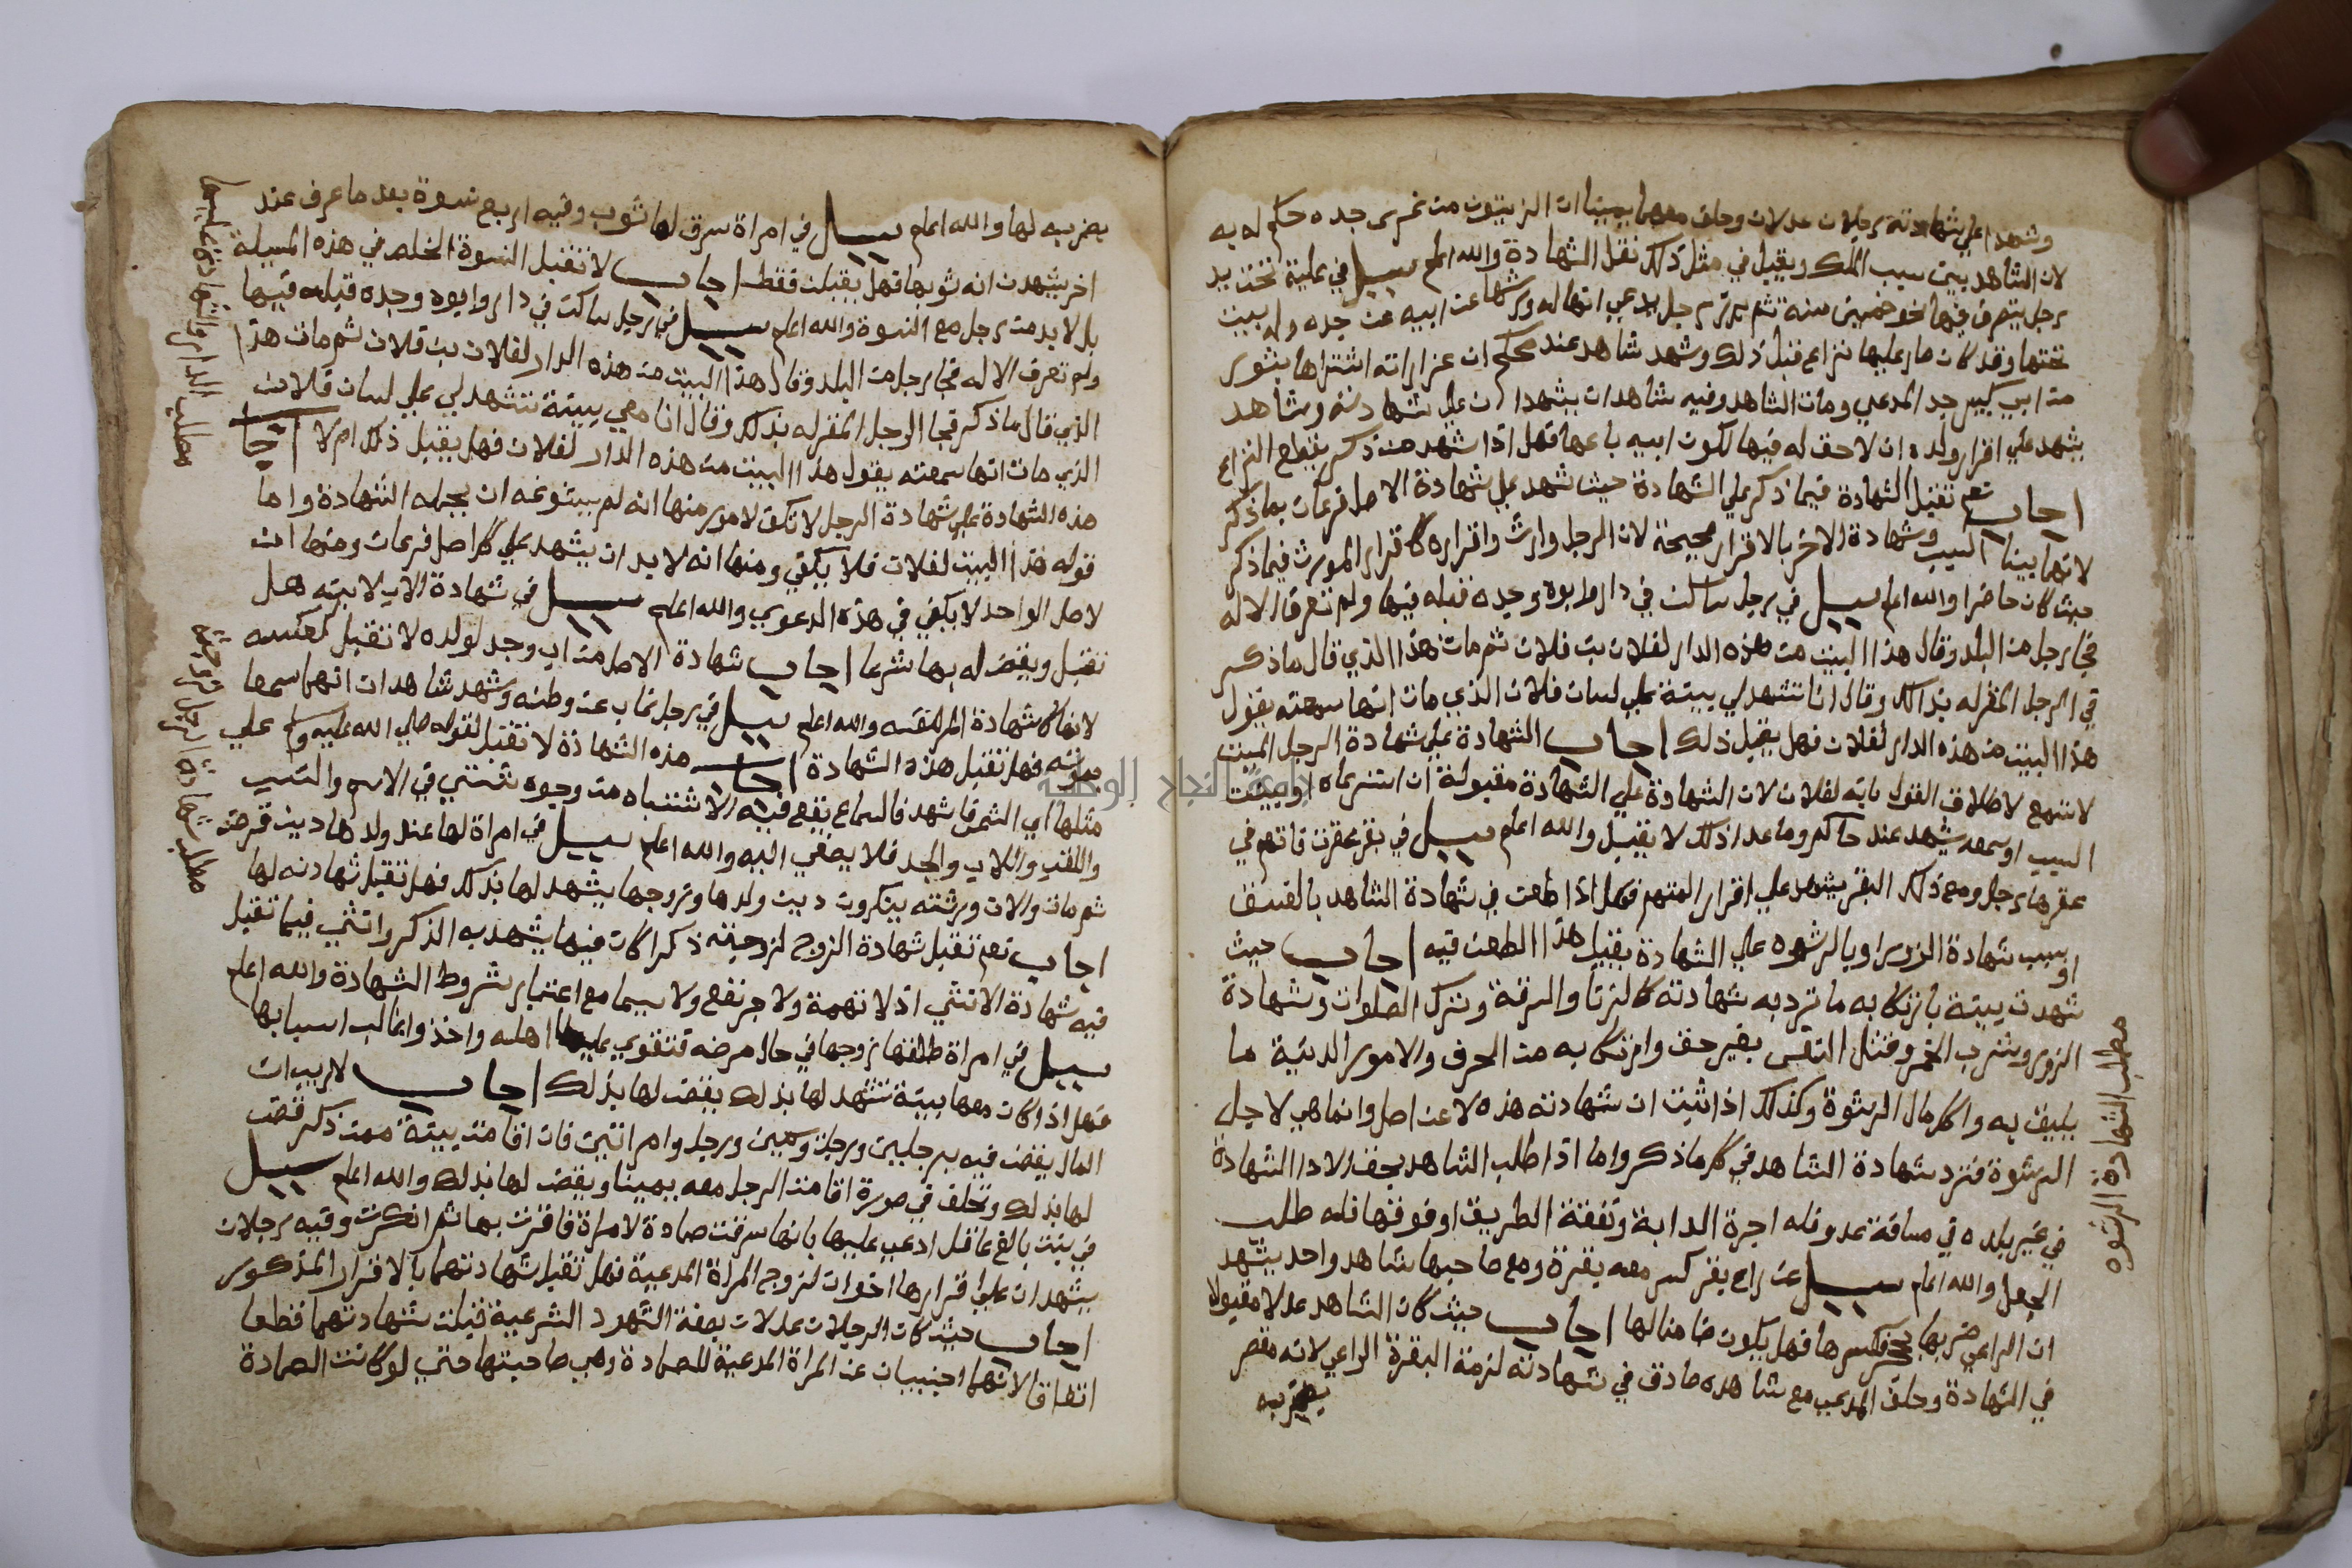 وشهدا علي شهادته رجلان عدلان وحلف معهما يمينا ان الزيتون من غرس جده حكم له به
لان الشاهد بين سبب الملك ويقبل في مثل ذلك نقل الشهادة والله اعلم سيل في علية تحت يد
رجل يتصرف فيها نحو خمسين سنة ثم برز رجل يدعي انها له ورثها عن ابيه عن جده وله بيت
تحتها وقد كان صار عليها نزاع قبل ذلك وشهد شاهد عند محكم ان عزارانه اشتراها بثور
من ابي كبير جد المدعي ومات الشاهد وفيه شاهدان يشهدان علي شهادته وشاهد
يشهد علي اقرار ولده ان لا حق له فيها لكون ابيه باعها فهل اذا شهد من ذكر ينقطع النزاع
اجاب نعم تقبل الشهادة فيما ذكر علي الشهادة حيث شهد علي شهادة الاصل فرعان بما ذكر
لانهما بينا السبب وشهادة الاخر بالاقرار صحيحة لان الرجل وارث واقراره كاقرار المورث فيما ذكر
حيث كان حاضرا والله اعلم سيل في رجل ساكن في دار وابوه وجده قبله فيها ولم تعرف الا له
فجا رجل من البلد وقال هذا البيت من هذه الدار لفلان بن فلان ثم مات هذا الذي قال ما ذكر
فجا الرجل المقر له بذالك وقال انا تشهد لي بينة علي لسان فلان الذي مات انها سمعته يقول
هذا البيت من هذه الدار لفلان فهل يقبل ذلك اجاب الشهادة علي شهادة الرجل الميت
لا تسمع لاطلاق القول بانه لفلان لان الشهادة علي الشهادة مقبولة ان استرعاه او بين
السبب او سمعه يشهد عند حاكم وما عدا ذلك لا يقبل والله اعلم سيل في بقر عقرت فاتهم في
عقرها رجل ومع ذلك البقر يشهد علي اقرار المتهم فهل اذا طعن في شهادة الشاهد بالفسق
او بسبب شهادة الزور او بالرشوه علي الشهادة يقبل هذا الطعن فيه اجاب حيث
شهدت بينة بارتكابه ما ترد به شهادته كالزنا والسرقة وترك الصلوات وشهادة
الزور وشرب الخمر وقتل النفس بغير حق وارتكابه من الحرف والامور الدنية ما
يليق به واكل مال الرشوة وكذلك اذا ثبت ان شهادته هذه لا عن اصل وانما هي لاجل
الرشوة فترد شهادة الشاهد في كل ما ذكر واما اذا طلب الشاهد بحق لادا الشهادة
في غير بلده في مسافة عدو فله اجرة الدابة ونفقة الطريق او فوقها فله طلب
الجعل والله اعلم سيل عن راع بقر كسر معه بقرة ومع صاحبها شاهد واحد يشهد
ان الراعي ضربها بحجر كسرها فهل يكون ضامنا لها اجاب حيث كان الشاهد عدلا مقبولا
في الشهادة وحلف المدعي مع شاهده صادق في شهادته لزمة البقرة الراعي لانه مقصر
بضربه
مطلب الشهادة الرشوه
بضربه لها والله اعلم سيل في امراة سرق لها ثوب وفيه اربع نسوة بعد ما عرف عند
اخر يشهدن انه ثوبها فهل يقبلن فقط اجاب لا تقبل النسوة الخلص في هذه المسيلة
بل لا بد من رجل مع النسوة والله اعلم سيل في رجل ساكن في دار وابوه وجده قبله فيها
ولم تعرف الا له فجا رجل من البلد وقال هذا البيت من هذه الدار لفلان بن فلان ثم مات هذا
الذي قال ما ذكر فجا الرجل المقر له بذلك وقال انا معي بينة تشهد لي علي لسان فلان
الذي مات انها سمعته يقول هذا البيت من هذه الدار لفلان فهل يقبل ذلك ام لا اجاب
هذه الشهادة علي شهادة الرجل لا تكف لامور منها انه لم يسترعه ان يحمله الشهادة واما
قوله هذا البيت لفلان فلا يكفي ومنها انه لا بد ان يشهد علي كل اصل فرعان ومنها ان
لاصل الواحد لا يكفي في هذه الدعوي والله اعلم سيل في شهادة الاب لابنه هل
تقبل ويقضى له بها شرعا اجاب شهادة الاصل من اب وجد لولده لا تقبل كعكسه
لانها كشهادة المرء لنفسه والله اعلم سيل في رجل غاب عن وطنه وشهد شاهدان انهما سمعا
بموته فهل تقبل هذه الشهادة اجاب هذه الشهادة لا تقبل لقوله صلي الله عليه وسلم علي
مثلها اي الشمس فاشهد فالسماع يقع فيه الاشتباه من وجوه شتي في الاسم والنسب
واللقب والاب والجد فلا يصغي اليه والله اعلم سيل في امراة لها عند ولدها دين قرضه
ثم مات والان ورثته ينكرون دين ولدها وزوجها يشهد لها بذلك فهل تقبل شهادته لها
اجاب نعم تقبل شهادة الزوج لزوجته ذكرا كان فيها يشهد به الذكر وانثي فيما تقبل
فيه شهادة الانثي اذ لا تهمة ولا جر نفع ولا سيما مع اعتبار شروط الشهادة والله اعلم
سيل في امراة طلقها زوجها في حال مرضه فتقوي عليها اهله واخذوا غالب اسبابها
فهل اذا كان معها بينة تشهد لها بذلك يقضى لها بذلك اجاب لا ريب ان
المال يقضى فيه برجلين ورجل ويمين ورجل وامراتين فان اقامت بينة ممن ذكر قضى
لها بذلك وتحلف في صورة اقامت الرجل معه يمينا ويقضى لها بذلك والله اعلم سيل
في بنت بالغ عاقل ادعي عليها بانها سرقت صمادة لامراة فاقرت بها ثم انكرت وفيه رجلان
يشهدان علي اقرارها اخوان لزوج المراة المدعية فهل تقبل شهادتهما بالاقرار المذكور
اجاب حيث كان الرجلان عدلان بصفة الشهود الشرعية قبلت شهادتهما قطعا
اتفاقا لانهما اجنبيان عن المراة المدعية للصمادة وهي صاحبتها حتي لو كانت الصمادة
مطلب شهادة الزوج لزوجته
جامعة النجاح الوطنية